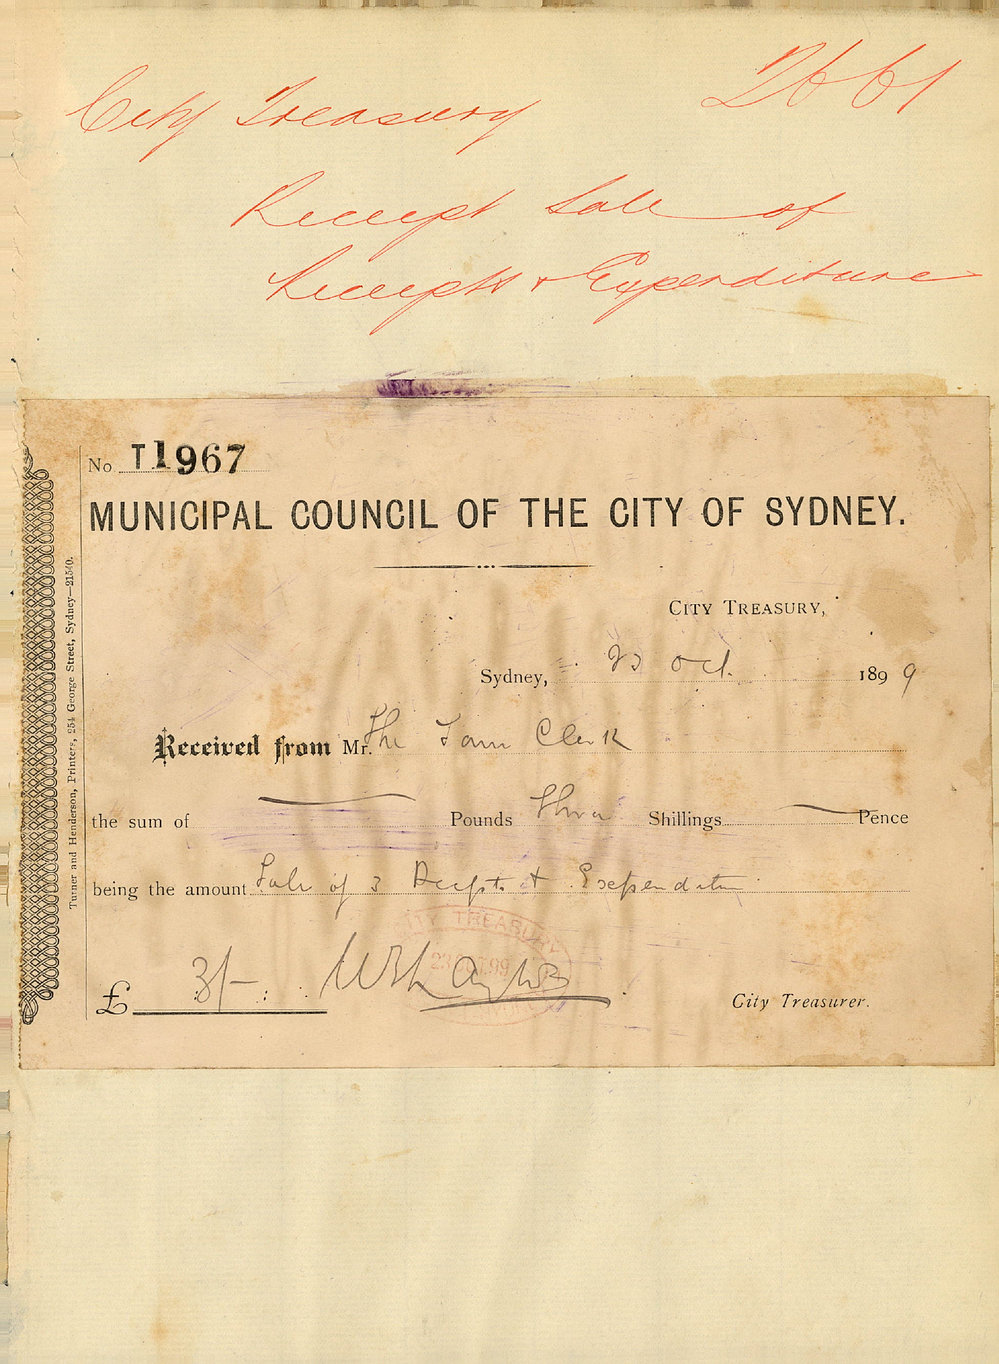 City Treasury 2661
Receipt Sale of
Receipts & Expenditure
No T1967
MUNICIPAL COUNCIL OF THE CITY OF SYDNEY.
CITY TREASURY,
Sydney, 23 Oct. 1899
Received from Mr. The Town Clerk
the sum of Pounds Three Shillings Pence
being the amount Sale of 3 Receipts & Expenditure
CITY TREASURY
23 OCT. 99
£ 3/-
City Treasurer.
Turner and Henderson, Printers, 254 George Street, Sydney—21540.